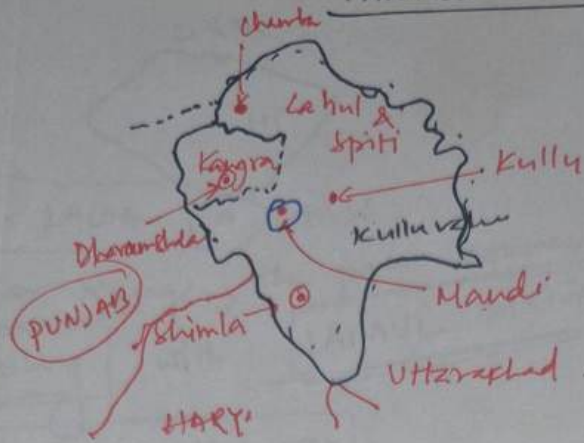 Chamba
Lahul &
Spiti
Kangra
Kullu
Dharamshala
Kullu
Mandi
PUNJAB
Shimla
Uttarakhad
HARY.